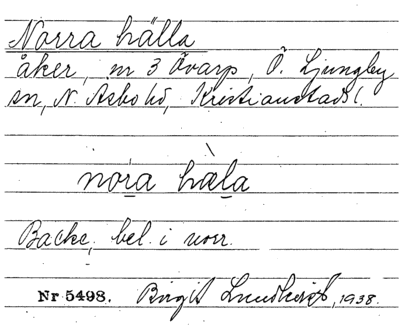 Norra hälla
åker, nr 3 Övarp, Ö. Ljungby
sn, N. Åsbo hd, Kristianstads l.
nora hæla
Backe, bel. i norr.
Nr 5498. Birgit Lundkvist, 1938.